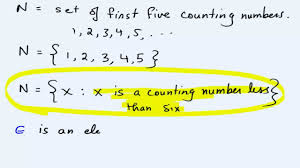 N = set of first five counting numbers.
1, 2, 3, 4, 5, . . .
N = { 1, 2, 3, 4, 5 }
N = { x : x is a counting number less than six }
∈ is an ele